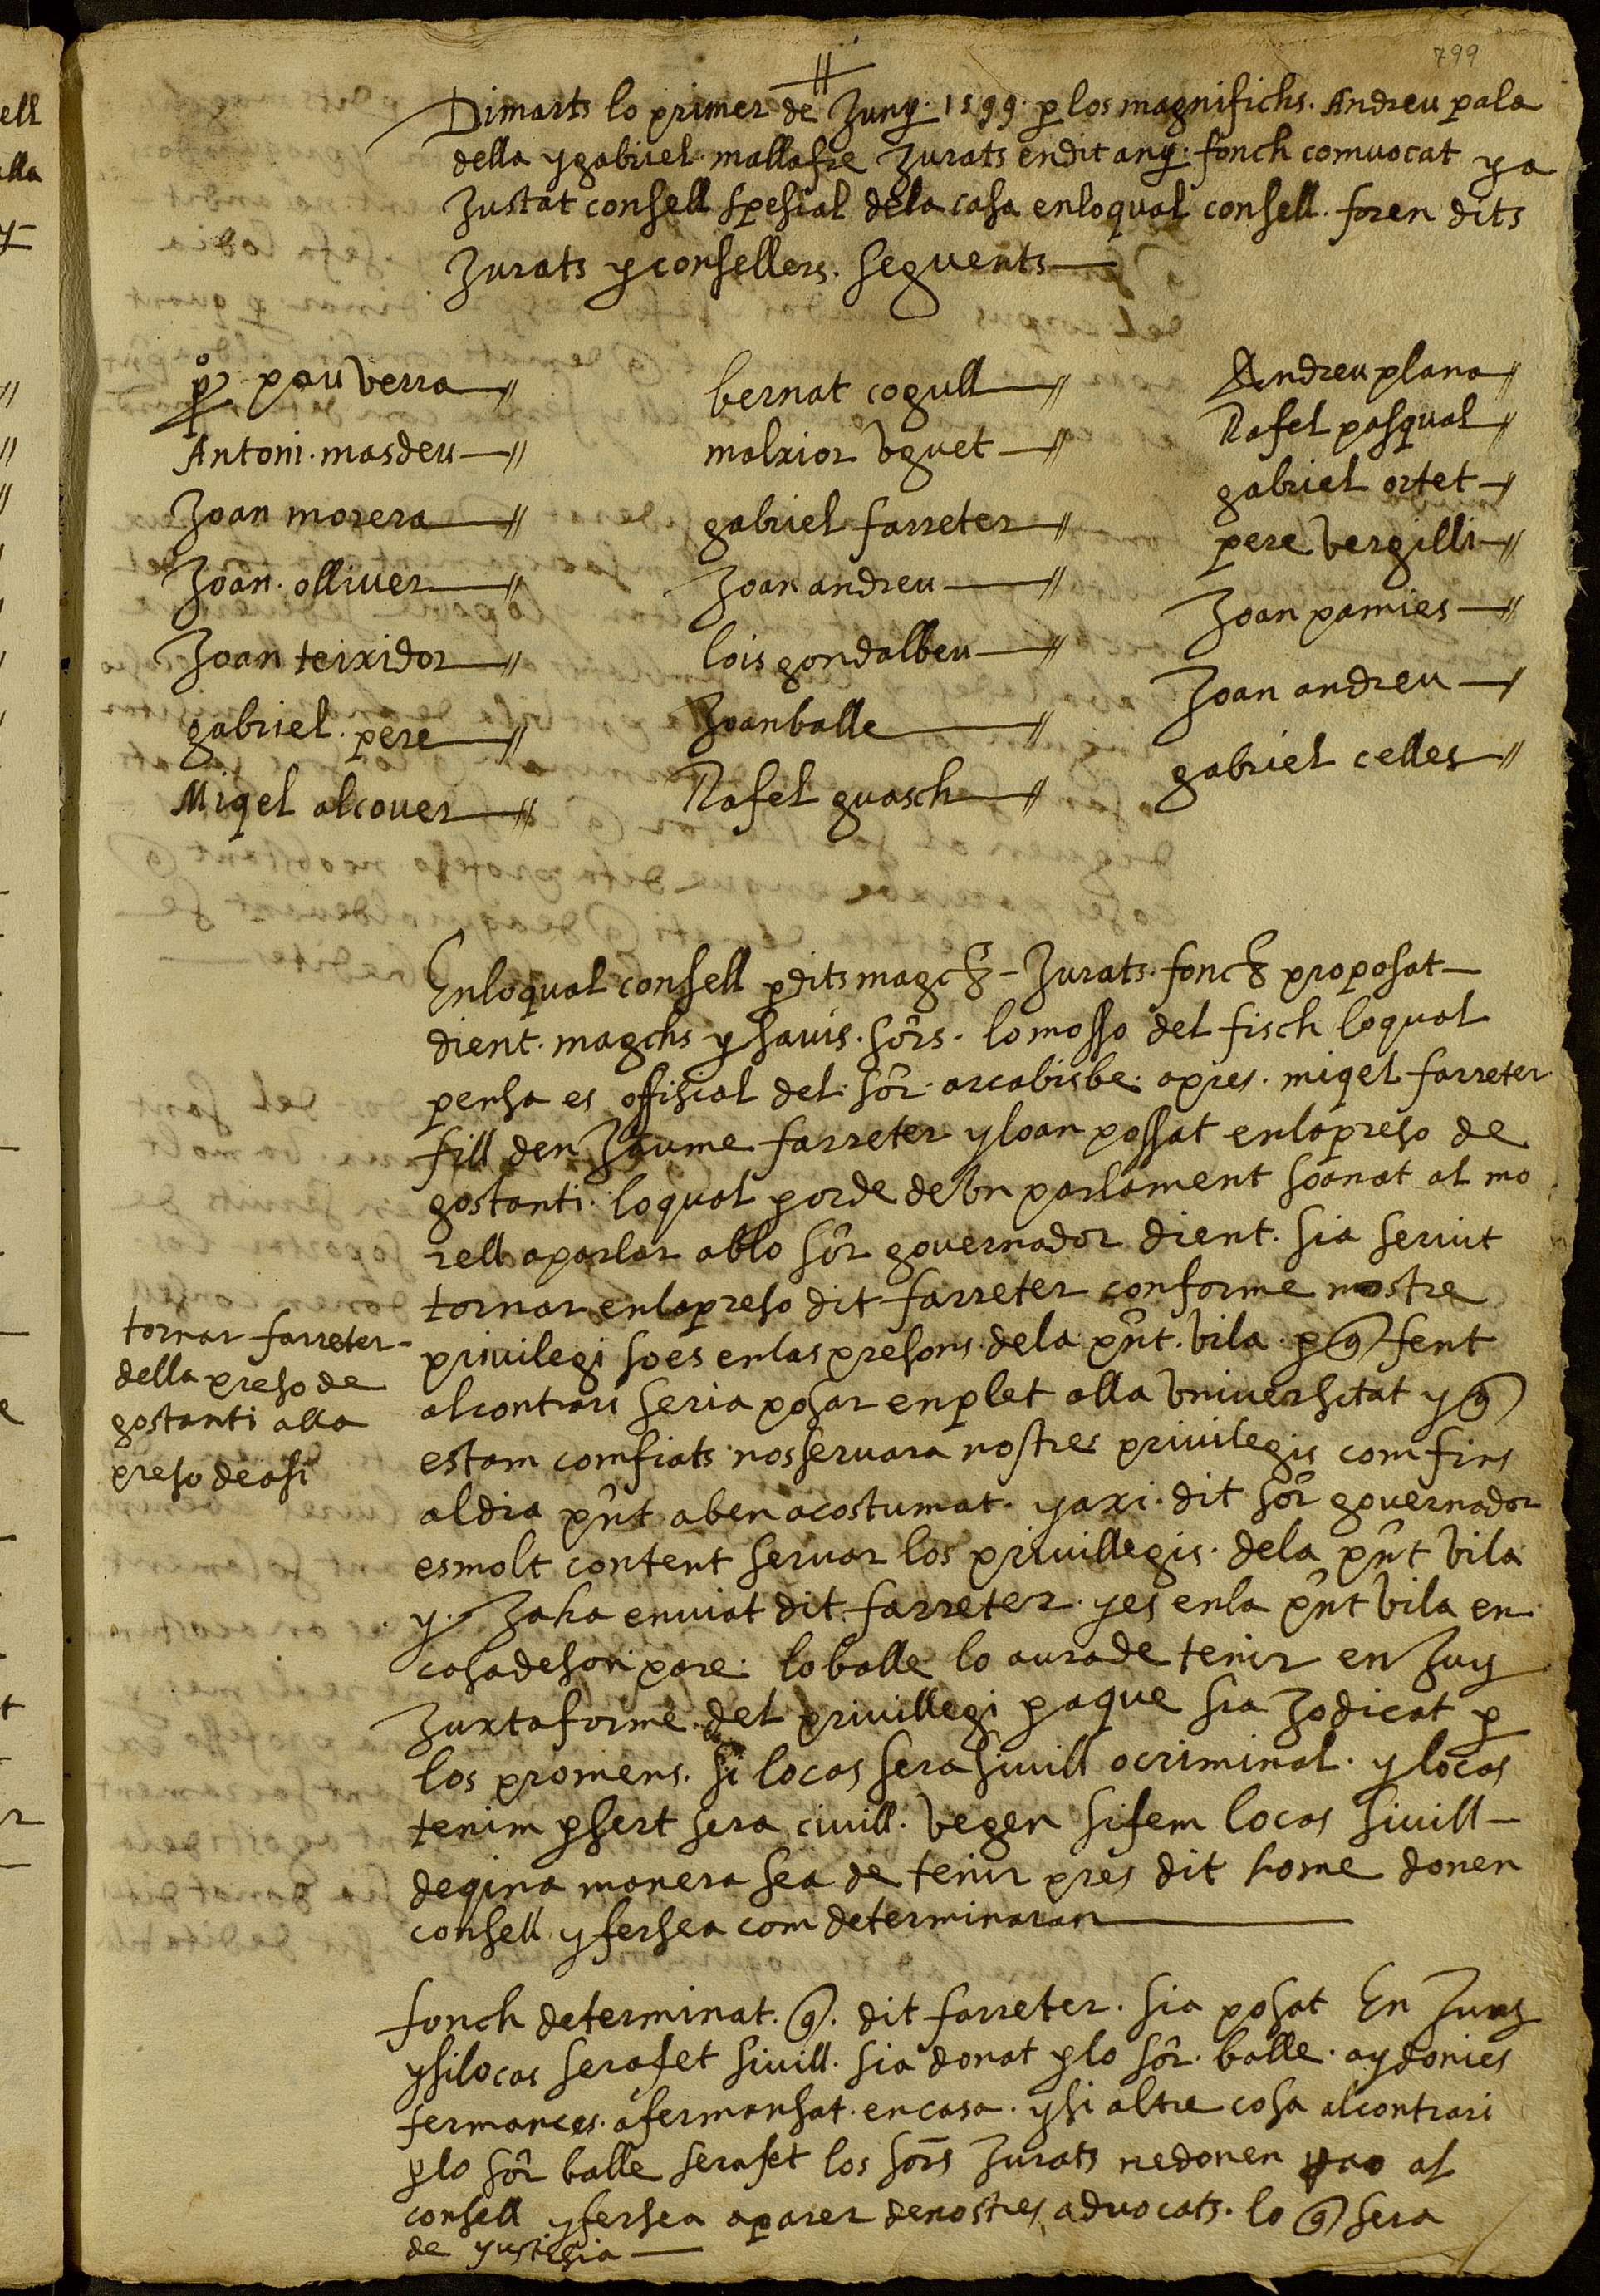 799
Dimarts lo primer de Juny. 1599. p los magnifichs. Andreu pala
della y gabriel mallafre Jurats en dit any. fonch comvocat y a
Justat consell spesial de la casa en lo qual consell. foren dits
Jurats y consellers. seguents
po pau verra
Antoni masdeu
Joan morera
Joan olliver
Joan teixidor
gabriel pere
Miqel alcover
bernat cogull
malxior uguet
gabriel farreter
Joan andreu
lois gondalbeu
Joan balle
Rafel guasch
Andreu plana
Rafel pasqual
gabriel ortet
pere vergilli
Joan pamies
Joan andreu
gabriel celles
En lo qual consell p dits magchs Jurats. fonch proposat
dient. magchs y savis. sors. lo mosso del fisch lo qual
pensa es offisial del sor arcabisbe apres. miqel farreter
fill den Jaume farreter y loan possat en la preso de
gostanti. lo qual p orde de un parlament so anat al mo
rell a parlar ab lo sor governador dient. sia servit
tornar en la preso dit farreter conforme nostre
privilegi so es en las presons de la pnt. vila. p q fent
al contrari seria posar en plet alla universitat y q
estam comfiats nos servara nostres privilegis com fins
al dia pnt aben acostumat. y axi. dit sor governador
es molt content servar los privillegis. de la pnt vila
y Ja ha enviat dit farreter. y es en la pnt vila en
casa de son pare. lo balle lo aura de tenir en Juy
Juxta forme del privillegi p a que sia Jodicat p
los promens. si lo cas sera sivill o criminal. y lo cas
tenim p sert sera civill. vegen si fem lo cas sivill
de qina manera sea de tenir pres dit home donen
consell y fersea com determinaran
tornar farreter
della preso de
gostanti alla
preso de asi
fonch determinat. q. dit farreter. sia posat En Juny
y si lo cas sera fet sivill. sia donat p lo sor. balle. ay donies
fermances. afermansat en casa. y si altre cosa al contrari
p lo sor balle sera fet los sors Jurats ne donen rao al
consell y fersea a parer de nostres advocats. lo q sera
de yustisia